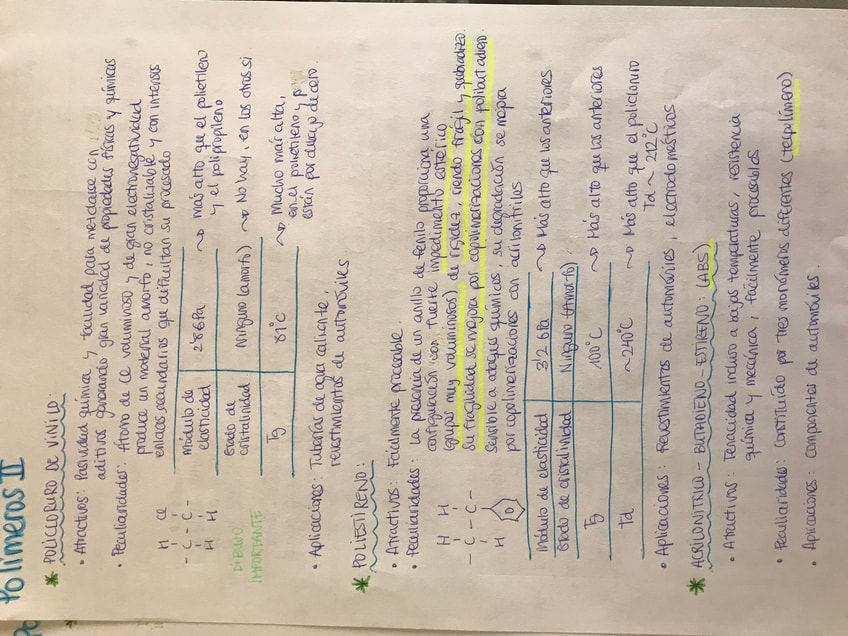 Polímeros II
* POLICLORURO DE VINILO:
• Atractivos: Pasividad química y facilidad para mezclarse con
aditivos generando gran variedad de propiedades físicas y químicas
• Peculiaridades: Átomo de Cl voluminoso y de gran electronegatividad
produce un material amorfo, no cristalizable y con intensos
enlaces secundarios que dificultan su procesado
H Cl
- C - C -
H H
DIBUJO
IMPORTANTE
Módulo de elasticidad 2'8 GPa ~> más alto que el polietileno
y el polipropileno
Grado de cristalinidad Ninguno (amorfo) ~> No hay, en los otros si
Tg 81°C ~> Mucho más alta,
en el polietileno y p
están por debajo de cero.
• Aplicaciones: Tuberías de agua caliente,
revestimientos de automóviles
* POLIESTIRENO:
• Atractivos: Fácilmente procesable.
• Peculiaridades: La presencia de un anillo de fenilo proporciona una
configuración con fuerte impedimento estérico
(grupos muy voluminosos) de rigidez, siendo frágil y quebradizo.
Su fragilidad se mejora por copolimerizaciones con polibutadieno.
Sensible a ataques químicos, su degradación se mejora
por copolimerizaciones con acrilonitrilos
H H
- C - C -
H
Módulo de elasticidad 3'2 GPa ~> Más alto que los anteriores
Grado de cristalinidad Ninguno (Amorfo)
Tg 100°C ~> Más alto que los anteriores
Td ~240°C ~> Más alto que el policloruro
Td ~ 212°C
• Aplicaciones: Revestimientos de automóviles, electrodomésticos
* ACRILONITRILO - BUTADIENO - ESTIRENO: (ABS)
• Atractivos: Tenacidad incluso a bajas temperaturas, resistencia
química y mecánica, fácilmente procesables
• Peculiaridades: Constituído por tres monómeros diferentes (terpolímero)
• Aplicaciones: Componentes de automóviles.